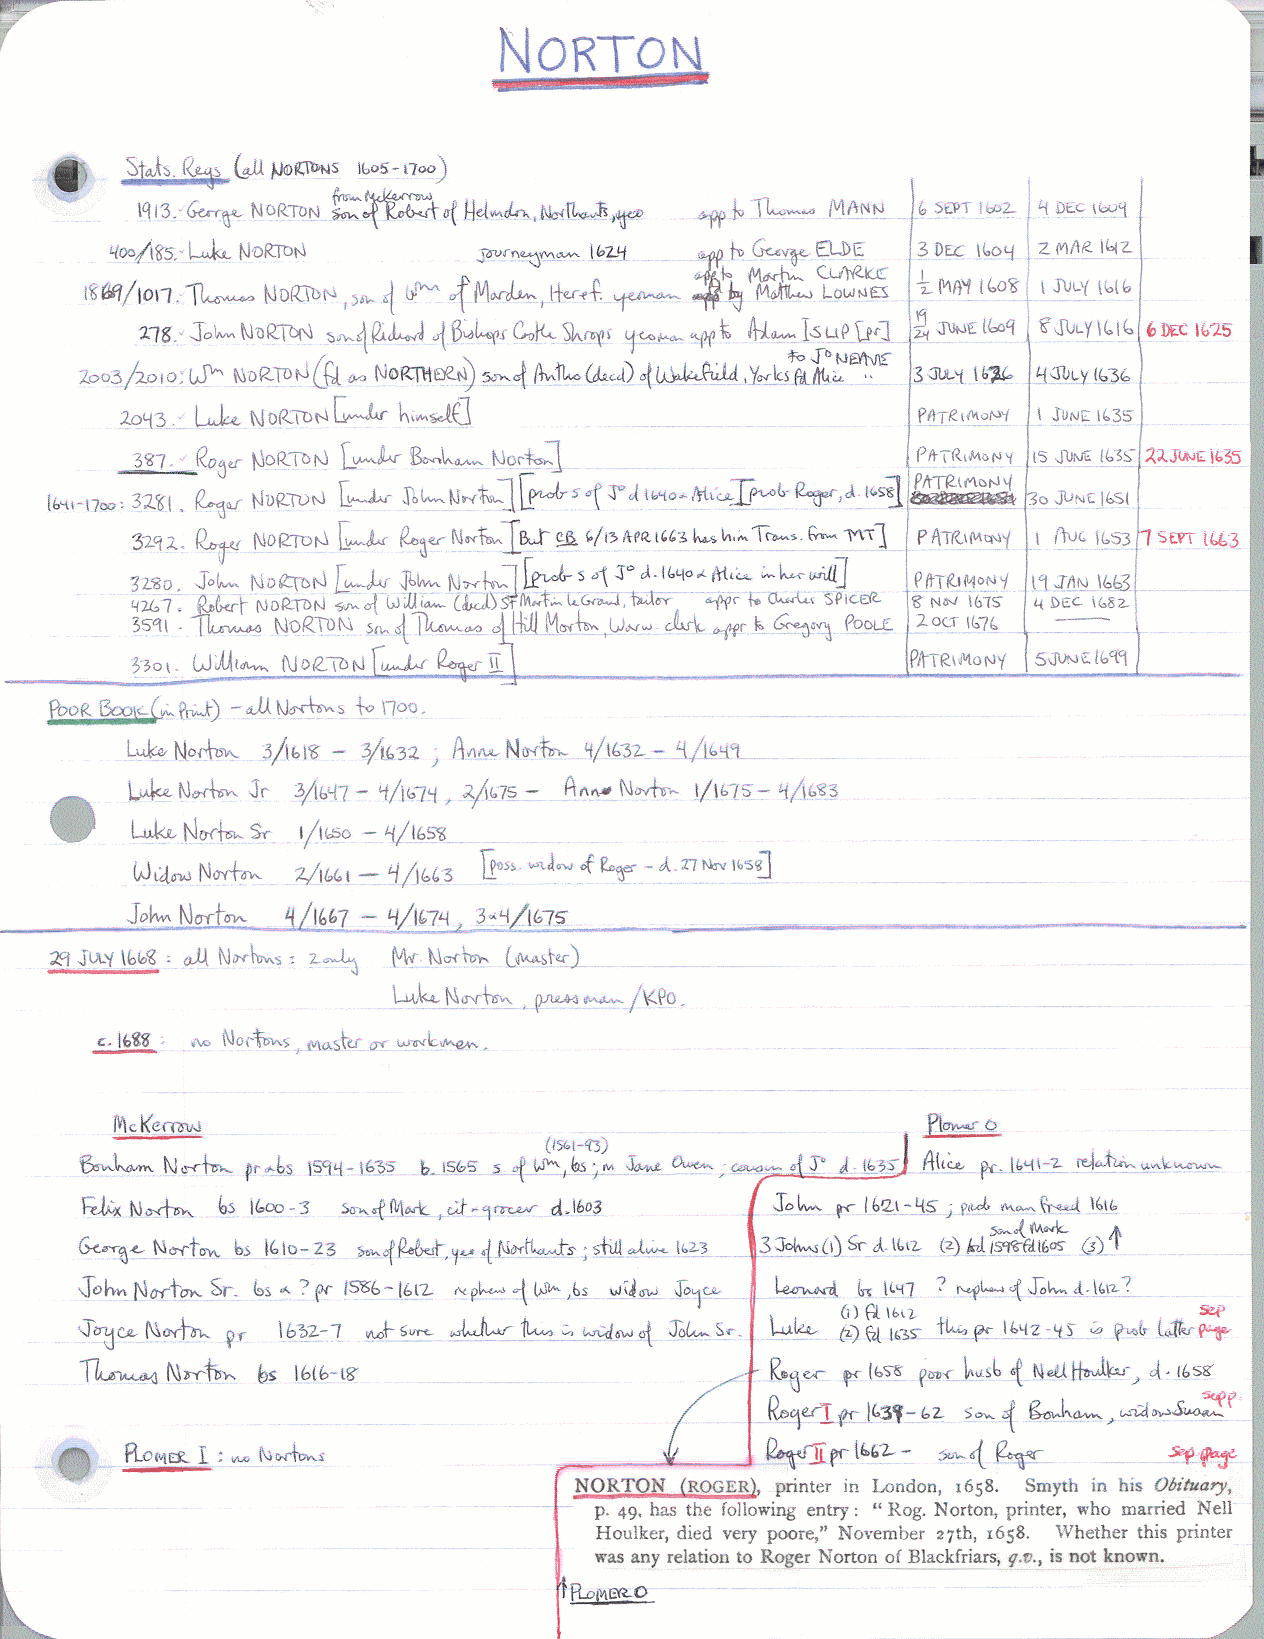 NORTON
Stats. Regs (all NORTONS 1605-1700)
from McKerrow
1913. George NORTON son of Robert of Helmdon, Northants, yeo app to Thomas MANN 6 SEPT 1602 4 DEC 1609
400/185. Luke NORTON journeyman 1624 app to George ELDE 3 DEC 1604 2 MAR 1612
app to Martin CLARKE
1869/1017. Thomas NORTON, son of Wm of Marden, Heref. yeoman by Matthew LOWNES ½ MAY 1608 1 JULY 1616
278. John NORTON son of Richard of Bishops Castle Shrops yeoman app to Adam ISLIP [pr] 19/24 JUNE 1609 8 JULY 1616 6 DEC 1625
to Jo NEAVE
2003/2010: Wm NORTON (fd as NORTHERN) son of Antho (decd) of Wakefield, Yorks fd Alice " 3 JULY 1626 4 JULY 1636
2043. Luke NORTON [under himself] PATRIMONY 1 JUNE 1635
387. Roger NORTON [under Bonham Norton] PATRIMONY 15 JUNE 1635 22 JUNE 1635
1641-1700: 3281. Roger NORTON [under John Norton] [prob s of Jo d 1640 & Alice [prob Roger, d. 1658] PATRIMONY 30 JUNE 1651
3292. Roger NORTON [under Roger Norton] [But CB 6/13 APR 1663 has him Trans. from MT] PATRIMONY 1 AUG 1653 7 SEPT 1663
3280. John NORTON [under John Norton] [prob s of Jo d. 1640 & Alice in her will] PATRIMONY 19 JAN 1663
4267. Robert NORTON son of William (decd) St Martin le Grand, tailor appr to Charles SPICER 8 NOV 1675 4 DEC 1682
3591. Thomas NORTON son of Thomas of Hill Morton, Warw. clerk appr to Gregory POOLE 2 OCT 1676 —
3301. William NORTON [under Roger II] PATRIMONY 5 JUNE 1699
POOR BOOK (in Print) - all Nortons to 1700.
Luke Norton 3/1618 - 3/1632 ; Anne Norton 4/1632 - 4/1649
Luke Norton Jr 3/1647 - 4/1674, 2/1675 - Anne Norton 1/1675 - 4/1683
Luke Norton Sr 1/1650 - 4/1658
Widow Norton 2/1661 - 4/1663 [poss. widow of Roger - d. 27 Nov 1658]
John Norton 4/1667 - 4/1674, 3&4/1675
29 JULY 1668 : all Nortons : 2 only Mr. Norton (master)
Luke Norton, pressman/KPO.
c. 1688 : no Nortons, master or workmen.
McKerrow Plomer O
(1561-93)
Bonham Norton pr & bs 1594-1635 b. 1565 s. of Wm, bs; m Jane Owen; cousin of Jo d. 1635 Alice pr. 1641-2 relation unknown
Felix Norton bs 1600-3 son of Mark, cit & grocer d. 1603 John pr 1621-45 ; prob man freed 1616
son of Mark
George Norton bs 1610-23 son of Robert, yeo of Northants; still alive 1623 3 Johns (1) Sr d. 1612 (2) bd 1598 fd 1605 (3) ↑
John Norton Sr. bs & ? pr 1586-1612 nephew of Wm, bs widow Joyce Leonard bs 1647 ? nephew of John d. 1612?
(1) fd 1612 sep
Joyce Norton pr 1632-7 not sure whether this is widow of John Sr. Luke (2) fd 1635 this pr 1642-45 is prob latter page
Thomas Norton bs 1616-18 Roger pr 1658 poor husb of Nell Houlker, d. 1658
sep p.
Roger I pr 1639-62 son of Bonham, widow Susan
PLOMER I : no Nortons Roger II pr 1662 - son of Roger sep. page
NORTON (ROGER), printer in London, 1658. Smyth in his Obituary,
p. 49, has the following entry: "Rog. Norton, printer, who married Nell
Houlker, died very poore," November 27th, 1658. Whether this printer
was any relation to Roger Norton of Blackfriars, q.v., is not known.
↑PLOMER O